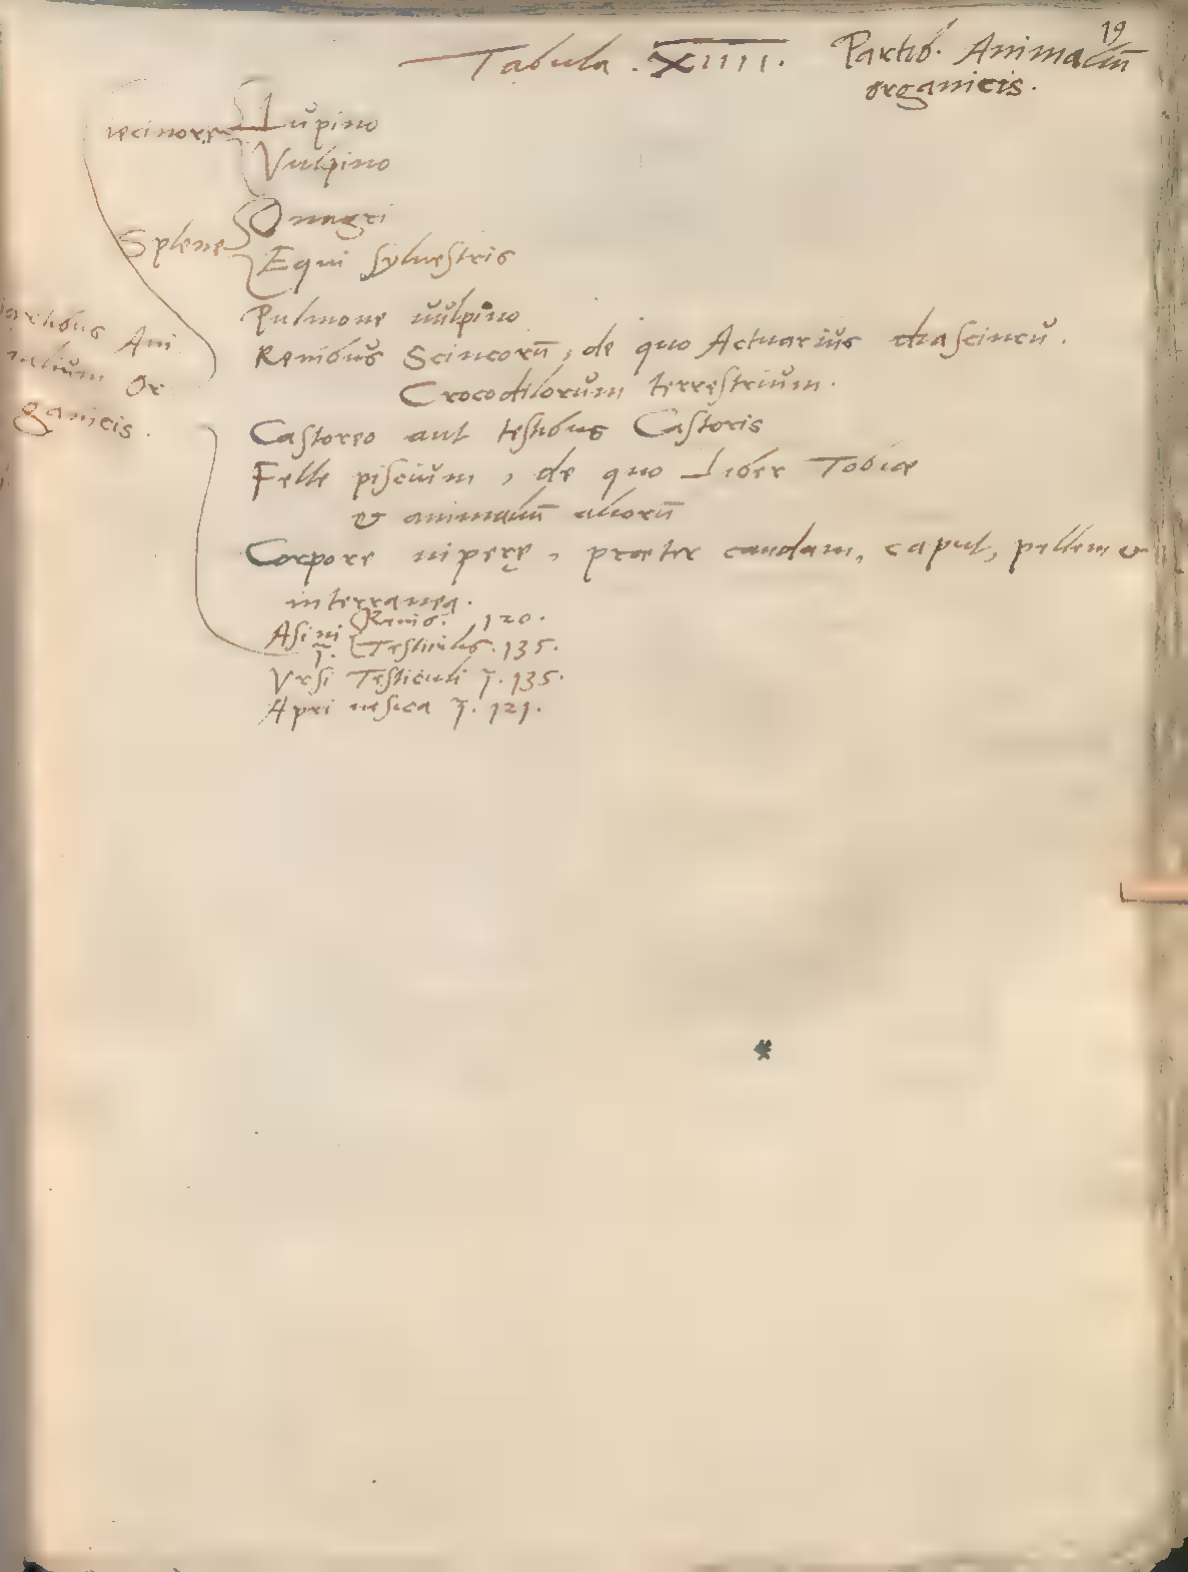 19
Tabula . XIIII . Partib. Animaliū
organicis.
iecinore Lupino
Vulpino
Splene Onagri
Equi sylvestris
partibus Ani
malium Or
ganicis.
Pulmone vulpino
Renibus Scincorū, de quo Actuarius diascincu.
Crocodilorum terrestrium.
Castoreo aut testibus Castoris
Felle piscium, de quo Liber Tobiæ
& animaliū aliorū
Corpore viperę, præter caudam, caput, pellem &
interranea.
Asini Renis. 120.
ī. Testiculus. 135.
Vrsi Testiculi ī. 135.
Apri vesica ī. 121.